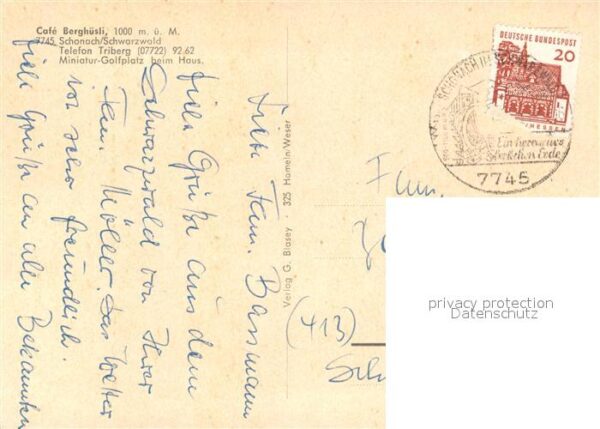 Café Berghüsli, 1000 m. ü. M.
7745 Schonach/Schwarzwald
Telefon Triberg (07722) 92.62
Miniatur-Golfplatz beim Haus.
Liebe Fam. Bassmann
Viele Grüße aus dem
Schwarzwald von Ihrer
Fam. Möller. Das Wetter
ist sehr freundlich.
Viele Grüße an alle Bekannten
Verlag G. Blasey · 325 Hameln-Weser
DEUTSCHE BUNDESPOST
20
HESSEN
SCHONACH
7745
Fam.
(413)
privacy protection
Datenschutz